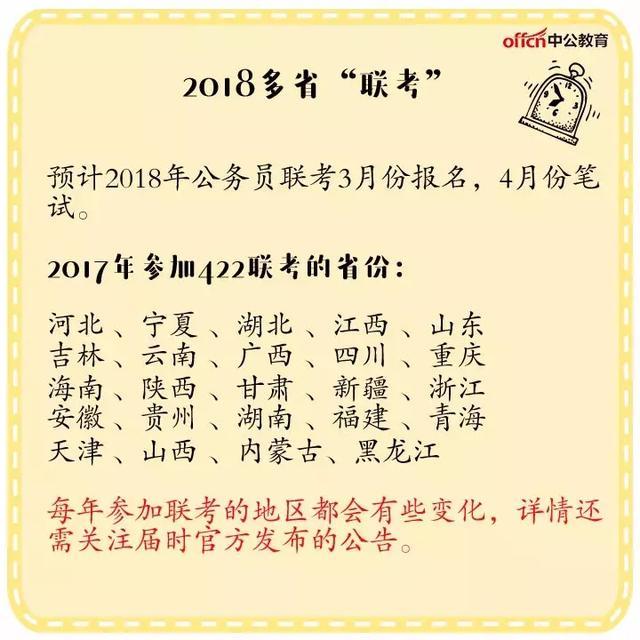 offcn中公教育
2018多省“联考”
预计2018年公务员联考3月份报名，4月份笔
试。
2017年参加422联考的省份：
河北 、宁夏 、湖北 、江西 、山东
吉林 、云南 、广西 、四川 、重庆
海南 、陕西 、甘肃 、新疆 、浙江
安徽 、贵州 、湖南 、福建 、青海
天津 、山西 、内蒙古、黑龙江
每年参加联考的地区都会有些变化，详情还
需关注届时官方发布的公告。